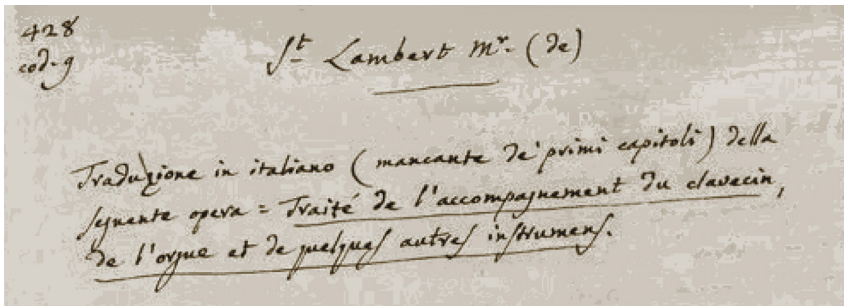 428
cod. 9
St Lambert Mr. (de)
Traduzione in italiano (mancante de' primi capitoli) della
seguente opera = Traité de l'accompagnement du clavecin,
de l'orgue et de quelques autres instrumens.